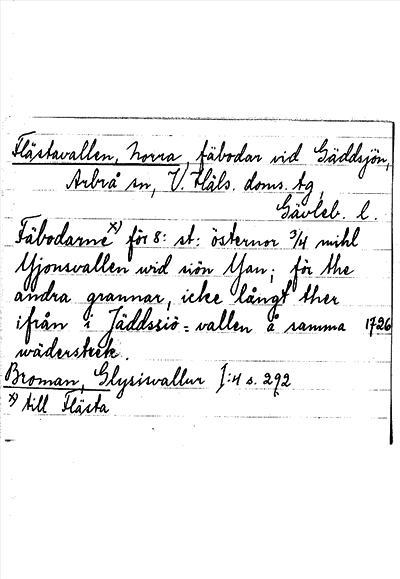 Flästavallen, norra, fäbodar vid Gäddsjön,
Arbrå sn, V. Häls. doms. tg,
Gävleb. l.
Fäbodarne x) för 8: st: östernor 3/4 mihl
Yjonsvallen wid siön Yan; för the
andra grannar, icke långt ther
ifrån i Jäddssiö=vallen å samma 1726
wäderstreck.
Broman, Glysisvallur I:4 s. 292
x) till Flästa